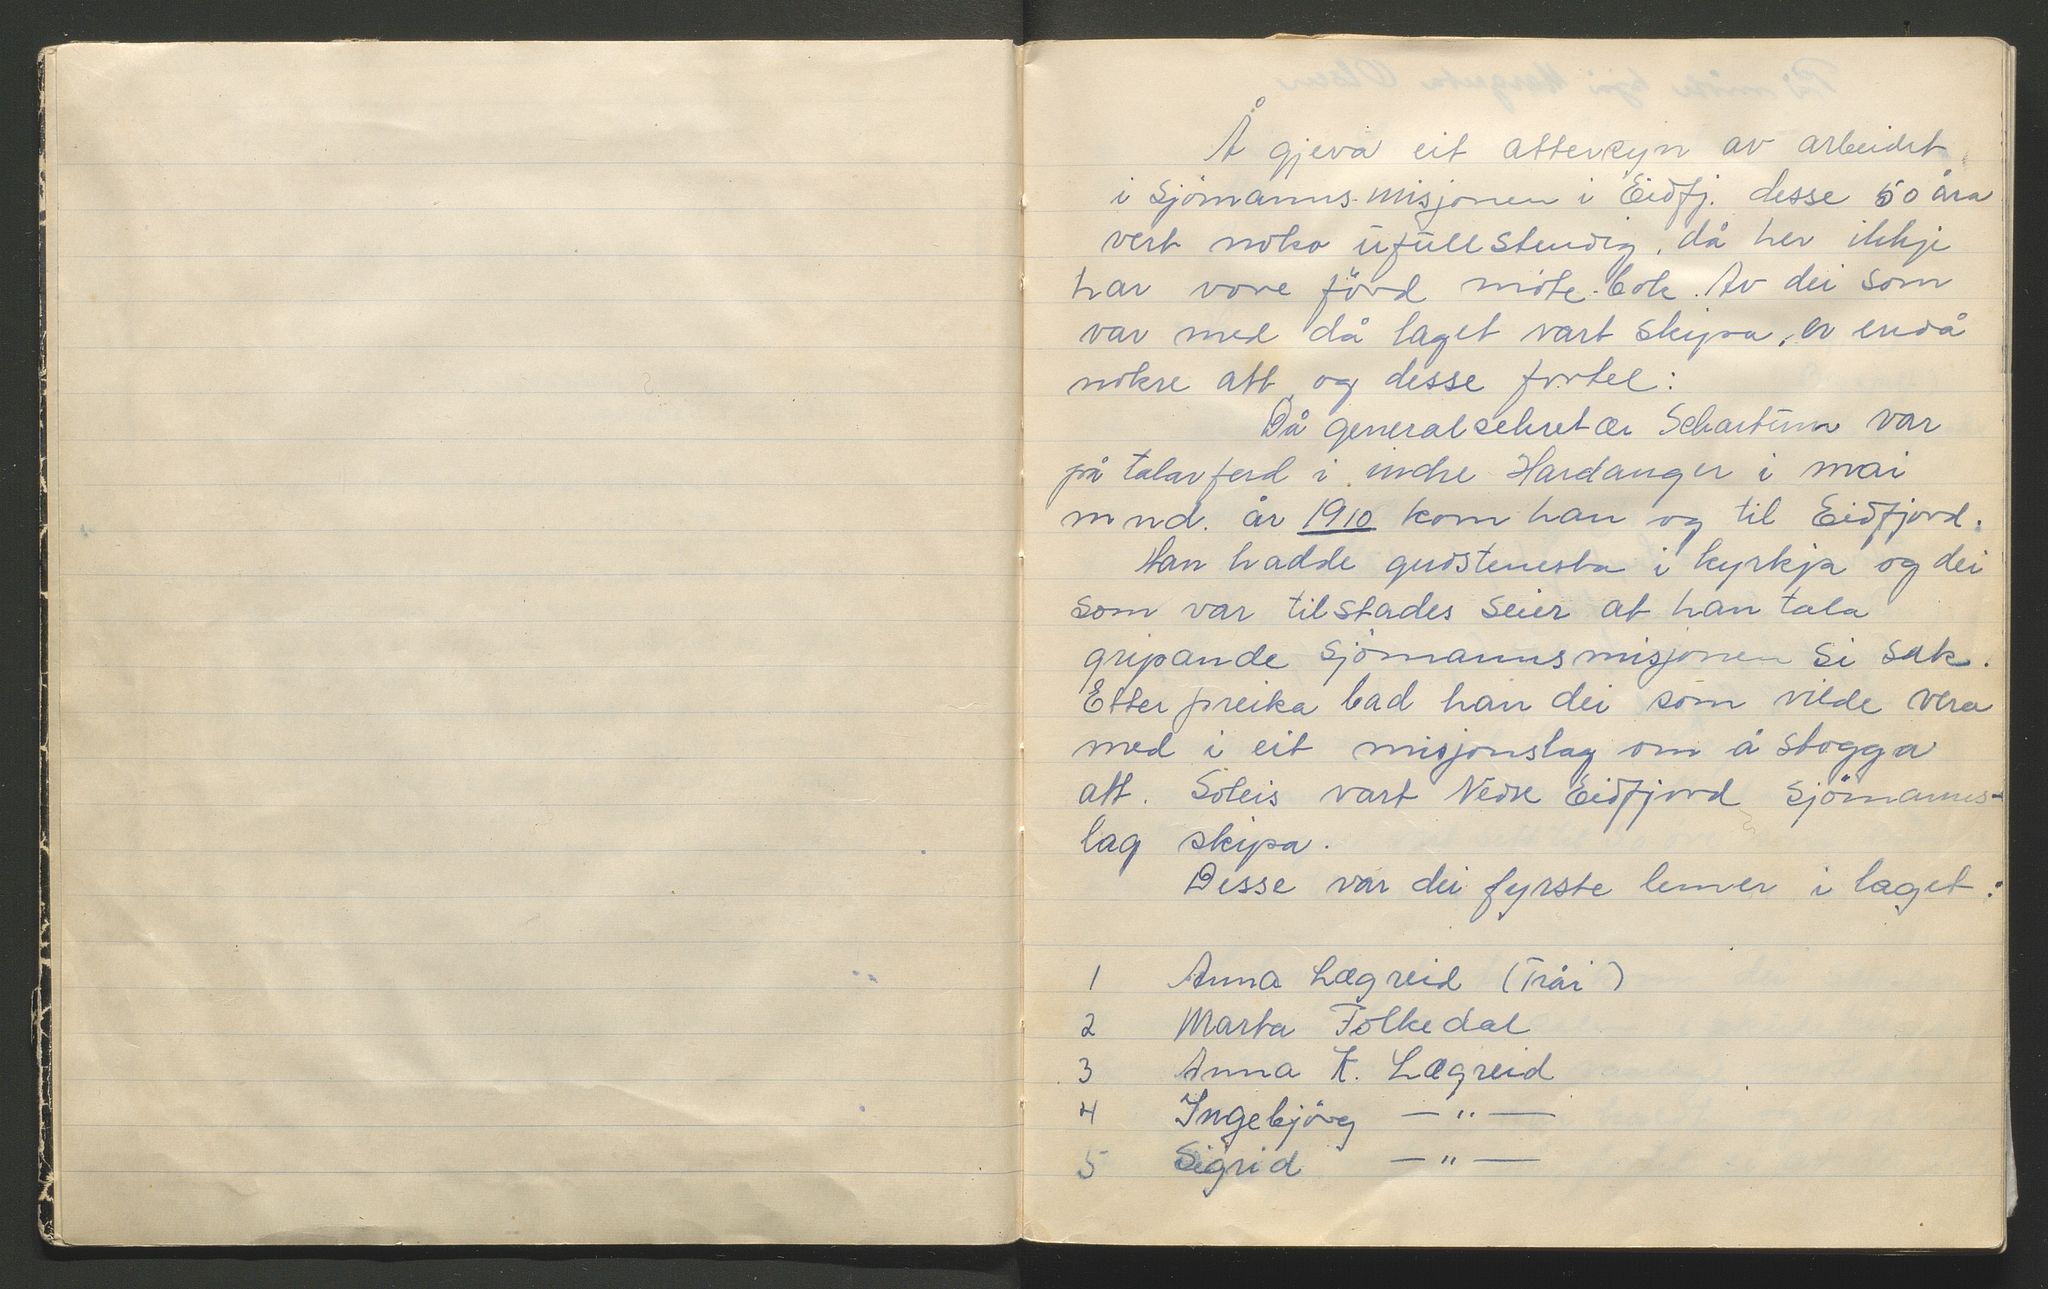 Å gjeva eit attersyn av arbeidet
i Sjömanns-misjonen i Eidfj. desse 50 åra
vert noko ufullstendig, då her ikkje
har vore förd möte-bok. Av dei som
var med då laget vart skipa, er endå
nokre att, og desse fortel:
Då generalsekretær Schartum var
på talarferd i indre Hardanger i mai
mnd. år 1910 kom han og til Eidfjord.
Han hadde gudstenesta i kyrkja og dei
som var tilstades seier at han tala
gripande Sjömannsmisjonen si sak.
Etter preika bad han dei som vilde vera
med i eit misjonslag om å stogga
att. Soleis vart Nedre Eidfjord Sjömanns-
lag skipa.
Desse var dei fyrste lemer i laget:
1 Anna Lægreid (Tråi)
2 Marta Folkedal
3 Anna K. Lægreid
4 Ingebjörg — " —
5 Sigrid — " —